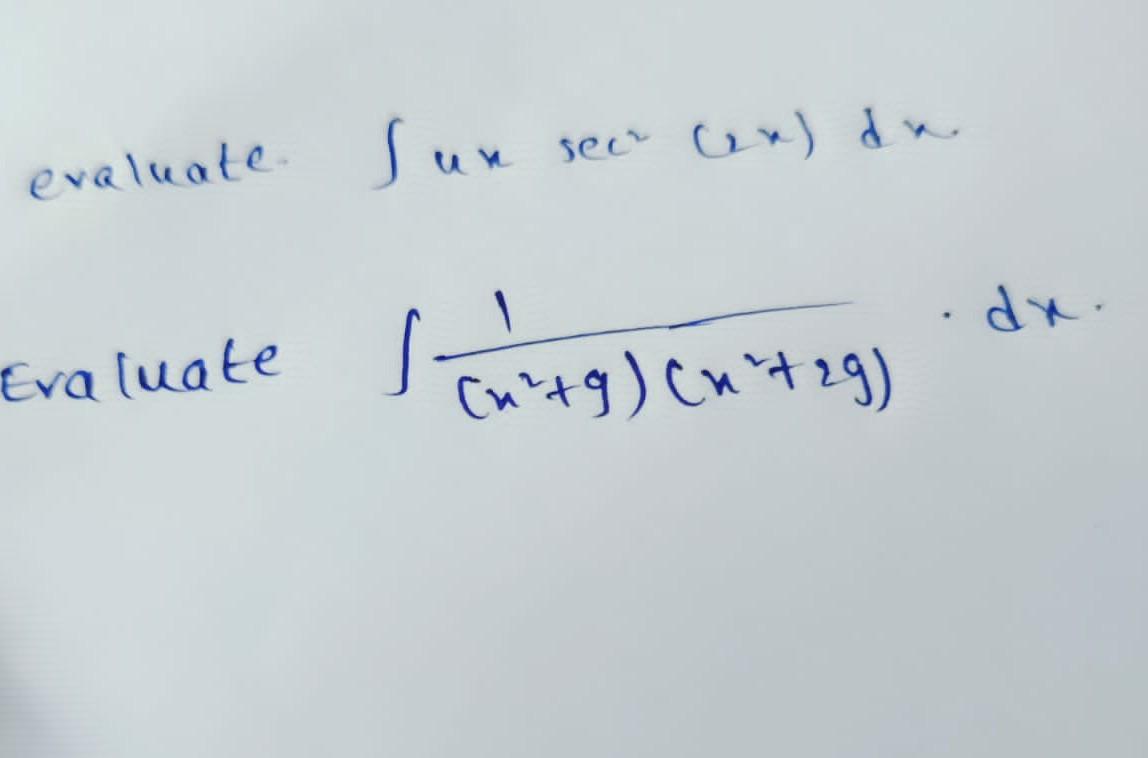 evaluate. ∫ 4x sec² (2x) dx.
Evaluate ∫ 1 / (x²+9)(x²+29) . dx.